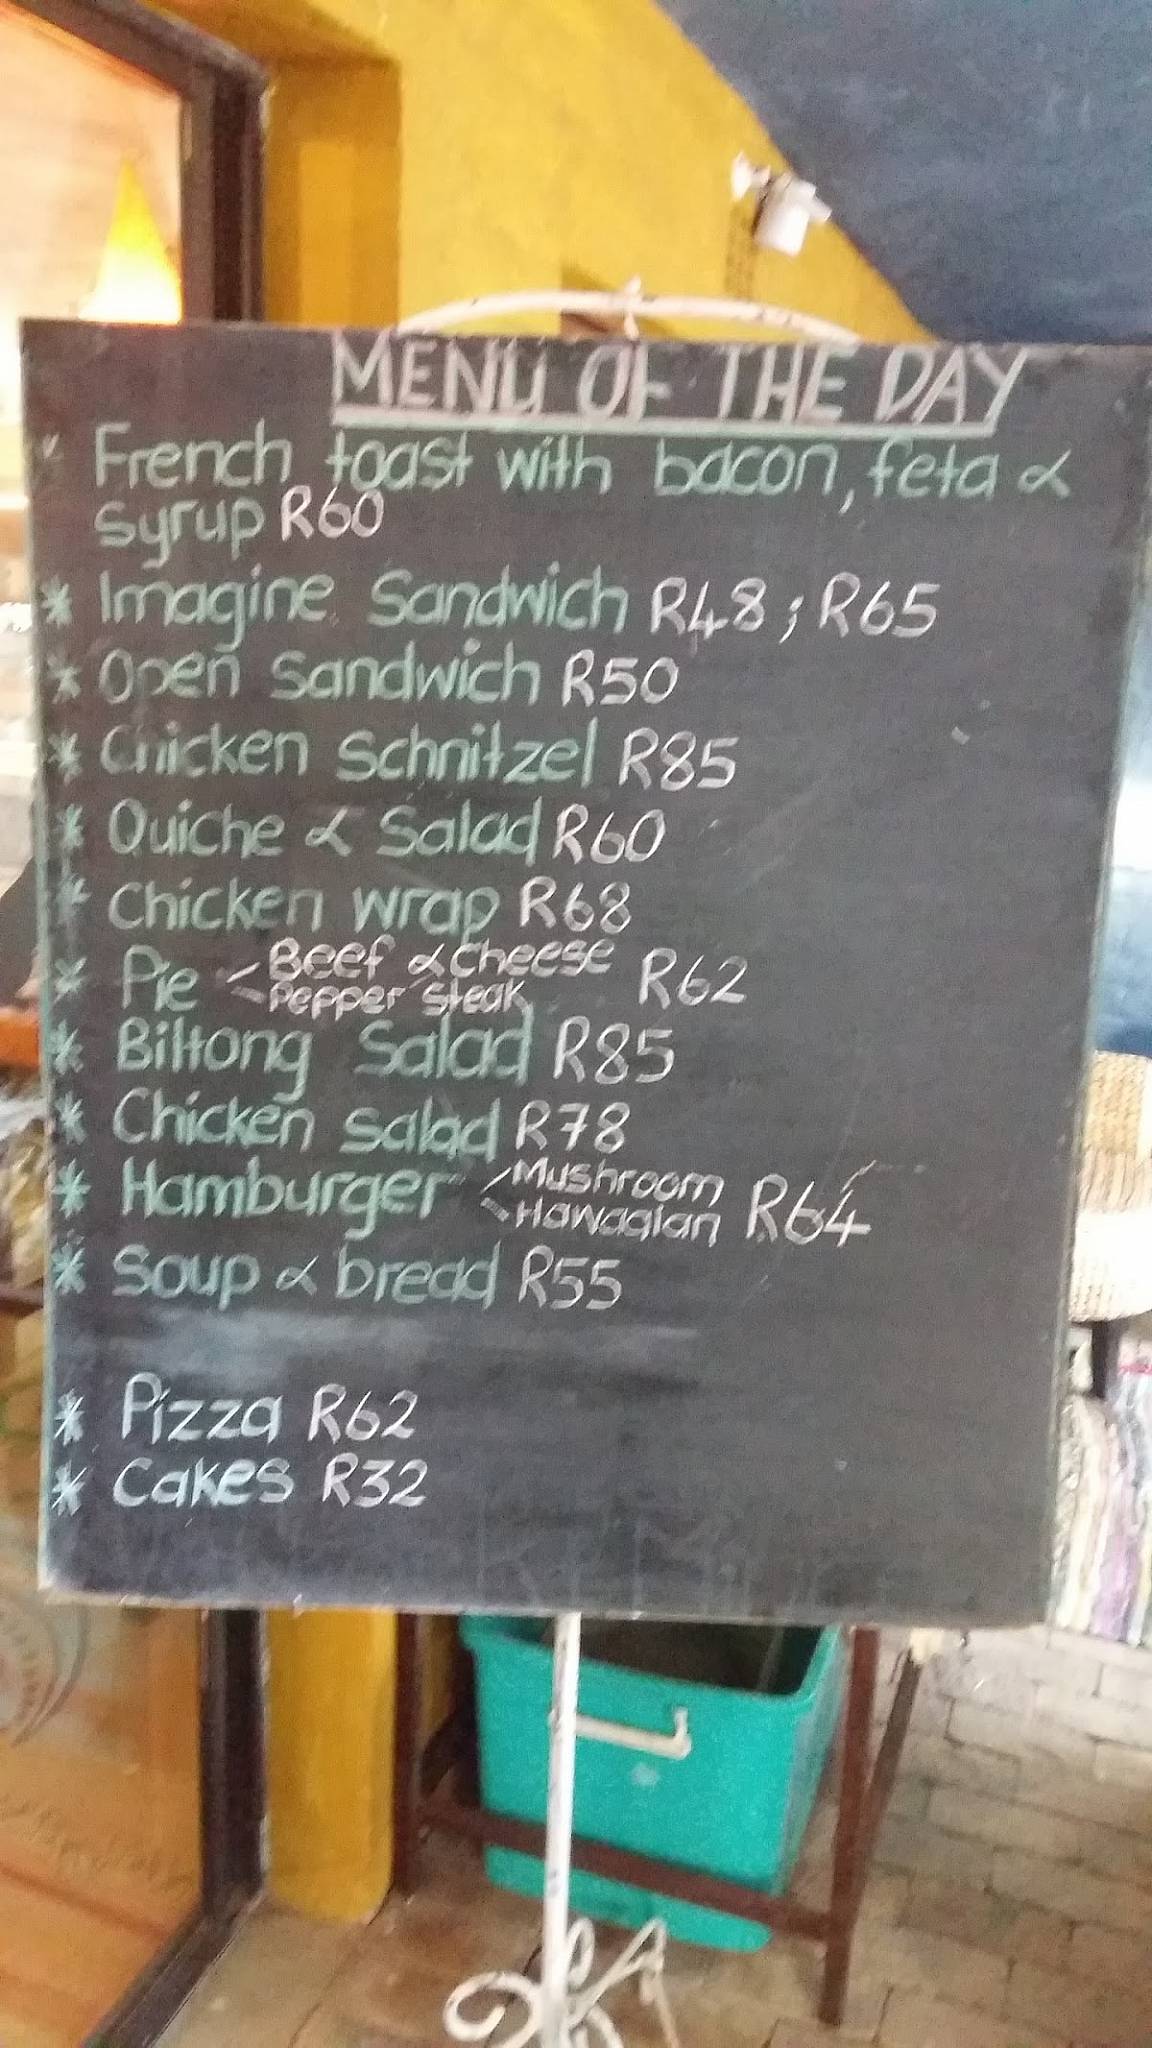 MENU OF THE DAY
* French toast with bacon, feta &
syrup R60
* Imagine Sandwich R48 ; R65
* Open Sandwich R50
* Chicken Schnitzel R85
* Quiche & Salad R60
* Chicken wrap R68
* Pie - Beef & Cheese R62
- Pepper Steak
* Biltong Salad R85
* Chicken Salad R78
* Hamburger - Mushroom R64
- Hawaaian
* Soup & bread R55
* Pizza R62
* Cakes R32